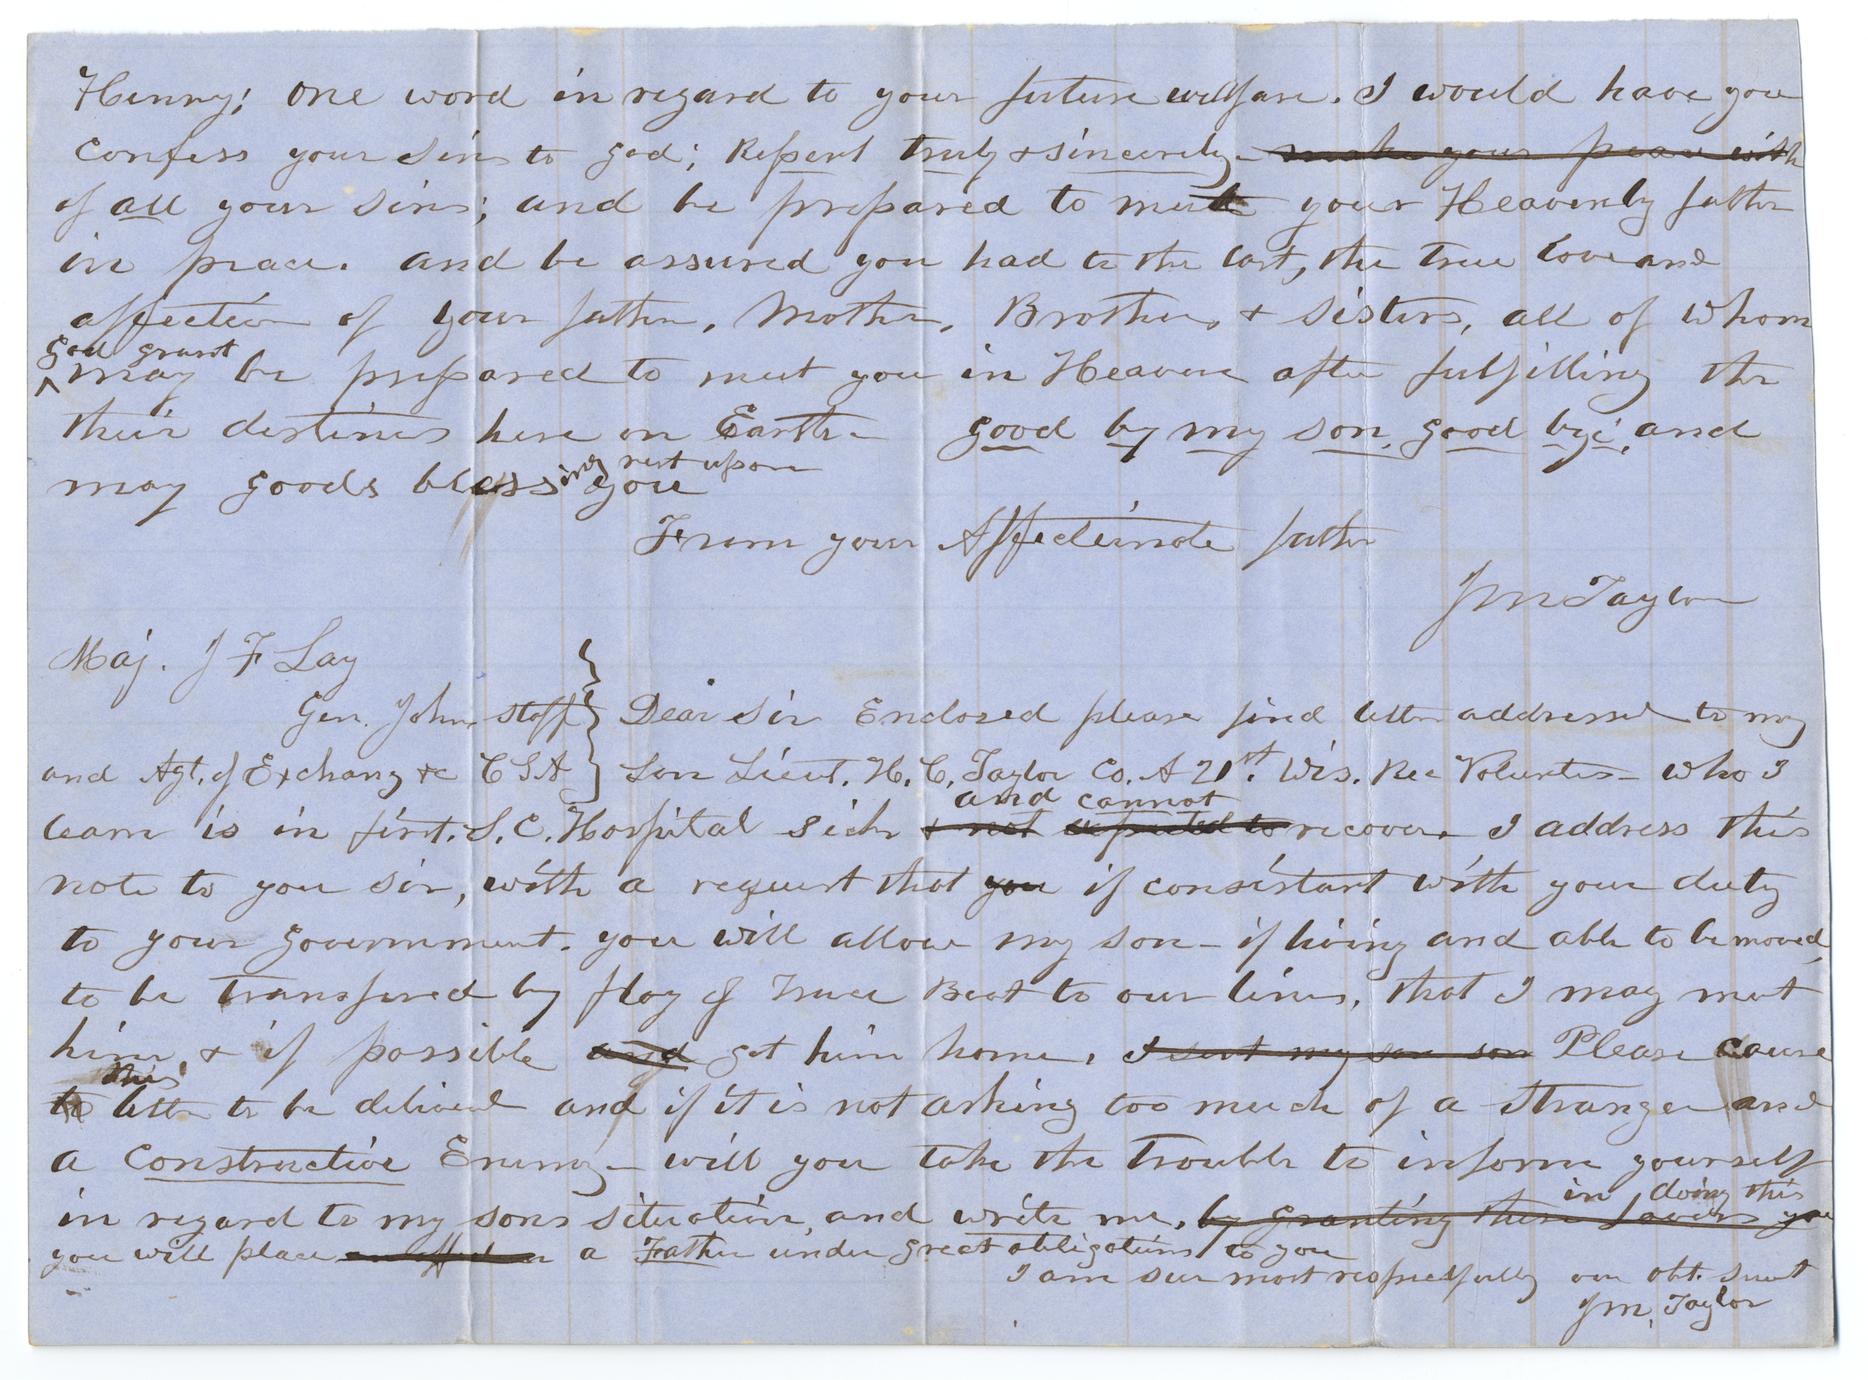 Henry; One word in regard to your future welfare. I would have you
confess your sins to god; Repent truly & sincerely- make your peace with
of all your sins; and be prepared to meet your Heavenly father
in peace. and be assured you had to the last, the true love and
affection of your father, Mother, Brother, & sisters, all of whom
god grant
may be prepared to meet you in Heaven after fulfilling the
their destinies here on Earth- good by my son, good bye, and
may goods blessing rest upon you
From your Affectinate father
JM Taylor
Maj. J F Lay
Gen. Johns staff } Dear Sir Enclosed please find letter addressed to my
and Agt. of Exchang &c C S A } Son Lieut. H. C. Taylor Co. A 21st. Wis. Volunters- who I
and cannot
learn is in first. S. C. Hospital sick & not expected to recover. I address this
note to you sir, with a request that you if consistant with your duty
to your government. you will allow my son- if living and able to be moved,
to be transfered by flag of Truce Boat to our lines, that I may meet
him, & if possible and get him home. I sent my son son Please cause
this
letter to be delivered and if it is not asking too much of a stranger and
a Constructive Enemy- will you take the trouble to inform yourself
in doing this
in regard to my sons situation, and write me. by granting these favors you
you will place a Father under great obligations to you
I am sir most respectfully obt. Servt
JM. Taylor